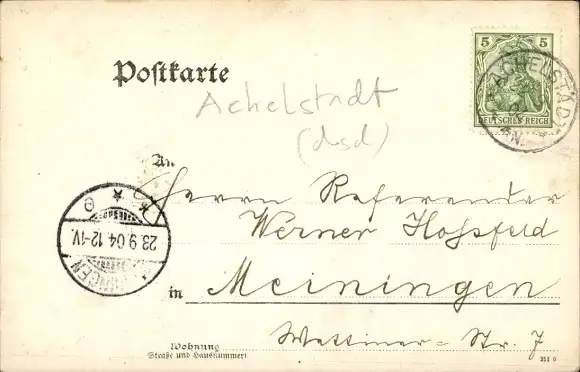 Postkarte
5 5
DEUTSCHES REICH
ACHELSTÄD
Achelstadt
(dsd)
An
Herrn Referendar
Werner Hossfeld
in Meiningen
23.9.04.12-1V.
Wettiner-Str. 7
Wohnung
(Straße und Hausnummer)